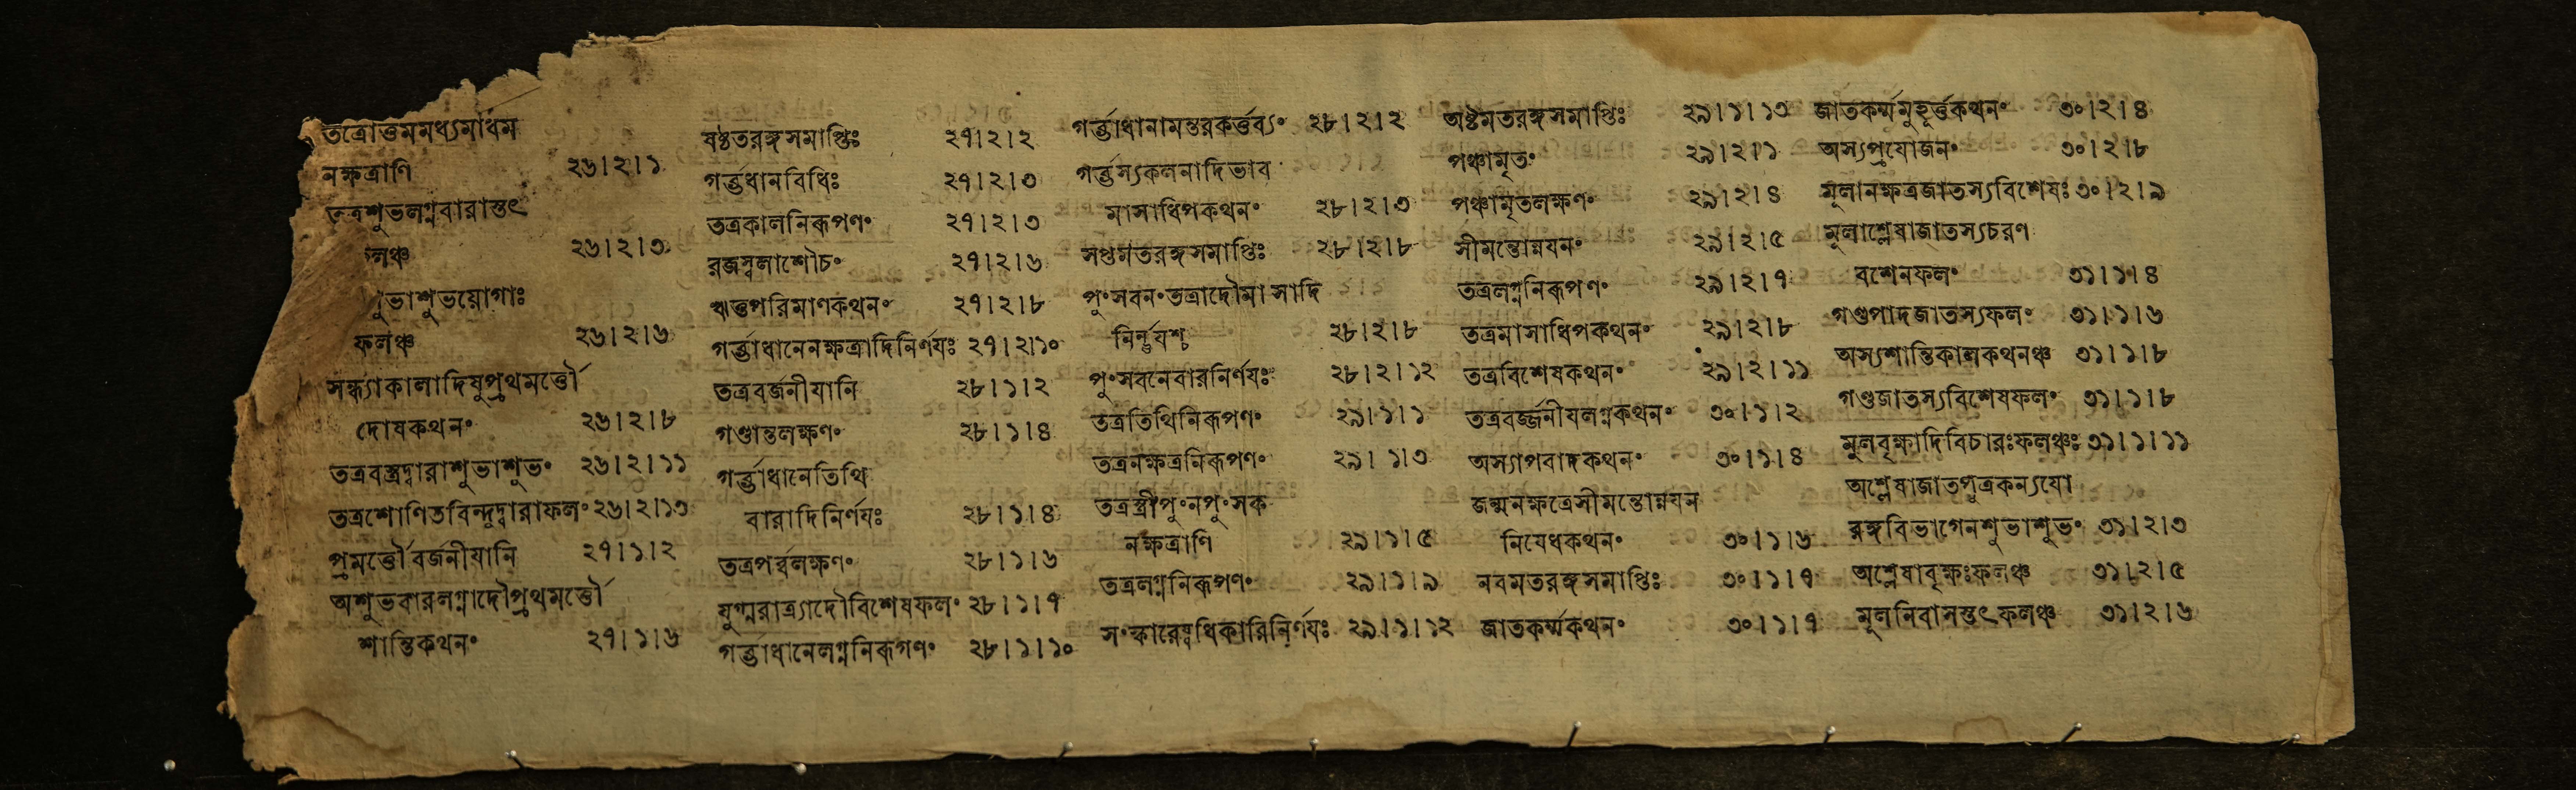 তত্রোত্তমমধ্যমাধম
নক্ষত্রাণি ২৬।২।১
তত্রশুভলগ্নবারাস্তৎ
লঞ্চ ২৬।২।৩
ভাশুভয়োগাঃ
ফলঞ্চ ২৬।২।৬
সন্ধ্যাকালাদিষুপ্রথমর্ত্তৌ
দোষকথনং ২৬।২।৮
তত্রবস্ত্রদ্বারাশুভাশুভং ২৬।২।১১
তত্রশোণিতবিন্দুদ্বারাফলং ২৬।২।১৩
প্রমর্ত্তৌবর্জনীযানি ২৭।১।২
অশুভবারলগ্নাদৌপ্রথমর্ত্তৌ
শান্তিকথনং ২৭।১।৬
ষষ্ঠতরঙ্গসমাপ্তিঃ ২৭।২।২
গর্ত্তধানবিধিঃ ২৭।২।৩
তত্রকালনিরূপণং ২৭।২।৩
রজস্বলাশৌচং ২৭।২।৬
ঋতুপরিমাণকথনং ২৭।২।৮
গর্ত্তাধানেনক্ষত্রাদিনির্ণযঃ ২৭।২।১০
তত্রবর্জনীযানি ২৮।১।২
গণ্ডান্তলক্ষণং ২৮।১।৪
গর্ত্তাধানেতিথি
বারাদিনির্ণযঃ ২৮।১।৪
তত্রপর্ব্বলক্ষণং ২৮।১।৬
যুগ্মরাত্র্যাদৌবিশেষফলং ২৮।১।৭
গর্ত্তাধানেলগ্ননিরূগণং ২৮।১।১০
গর্ত্তাধানামন্তরকর্ত্তব্যং ২৮।২।২
গর্ত্তস্যকলনাদিভাব
মাসাধিপকথনং ২৮।২।৩
সপ্তমতরঙ্গসমাপ্তিঃ ২৮।২।৮
পুংসবনংতত্রাদৌমাসাদি
২৮।২।৮
পুংসবনেবারনির্ণযঃ ২৮।২।১২
তত্রতিথিনিরূপণং ২৯।১।১
তত্রনক্ষত্রনিরূপণং ২৯। ১।৩
তত্রস্ত্রীপুংনপুংসক
নক্ষত্রাণি ২৯।১।৫
তত্রলগ্ননিরূপণং ২৯।১।৯
সংস্কারেষ্বধিকারিনির্ণযঃ ২৯।১।১২
অষ্টমতরঙ্গসমাপ্তিঃ ২৯।১।১৩
পঞ্চামৃতং ২৯।২।১
পঞ্চামৃতলক্ষণং ২৯।২।৪
সীমন্তোন্নযনং ২৯।২।৫
তত্রলগ্ননিরূপণং ২৯।২।৭
তত্রমাসাধিপকথনং ২৯।২।৮
তত্রবিশেষকথনং ২৯।২।১১
তত্রবর্জ্জনীযলগ্নকথনং ৩০।১।২
অস্যাপবাদকথনং ৩০।১।৪
জন্মনক্ষত্রেসীমন্তোন্নযন
নিষেধকথনং ৩০।১।৬
নবমতরঙ্গসমাপ্তিঃ ৩০।১।৭
জাতকর্ম্মকথনং ৩০।১।৭
জাতকর্ম্মমুহূর্ত্তকথনং ৩০।২।৪
অস্যপ্রযোজনং ৩০।২।৮
মূলানক্ষত্রজাতস্যবিশেষঃ ৩০।২।৯
মূলাশ্লেষাজাতস্যচরণ
বশেনফলং ৩১।১।৪
গণ্ডপাদজাতস্যফলং ৩১।১।৬
অস্যশান্তিকালকথনঞ্চ ৩১।১।৮
গণ্ডজাতস্যবিশেষফলং ৩১।১।৮
মূলবৃক্ষাদিবিচারঃফলঞ্চঃ ৩১।১।১১
অশ্লেষাজাতপুত্রকন্যযো
রঙ্গবিভাগেনশুভাশুভং ৩১।২।৩
অশ্লেষাবৃক্ষঃফলঞ্চ ৩১।২।৫
মূলনিবাসস্তৎফলঞ্চ ৩১।২।৬